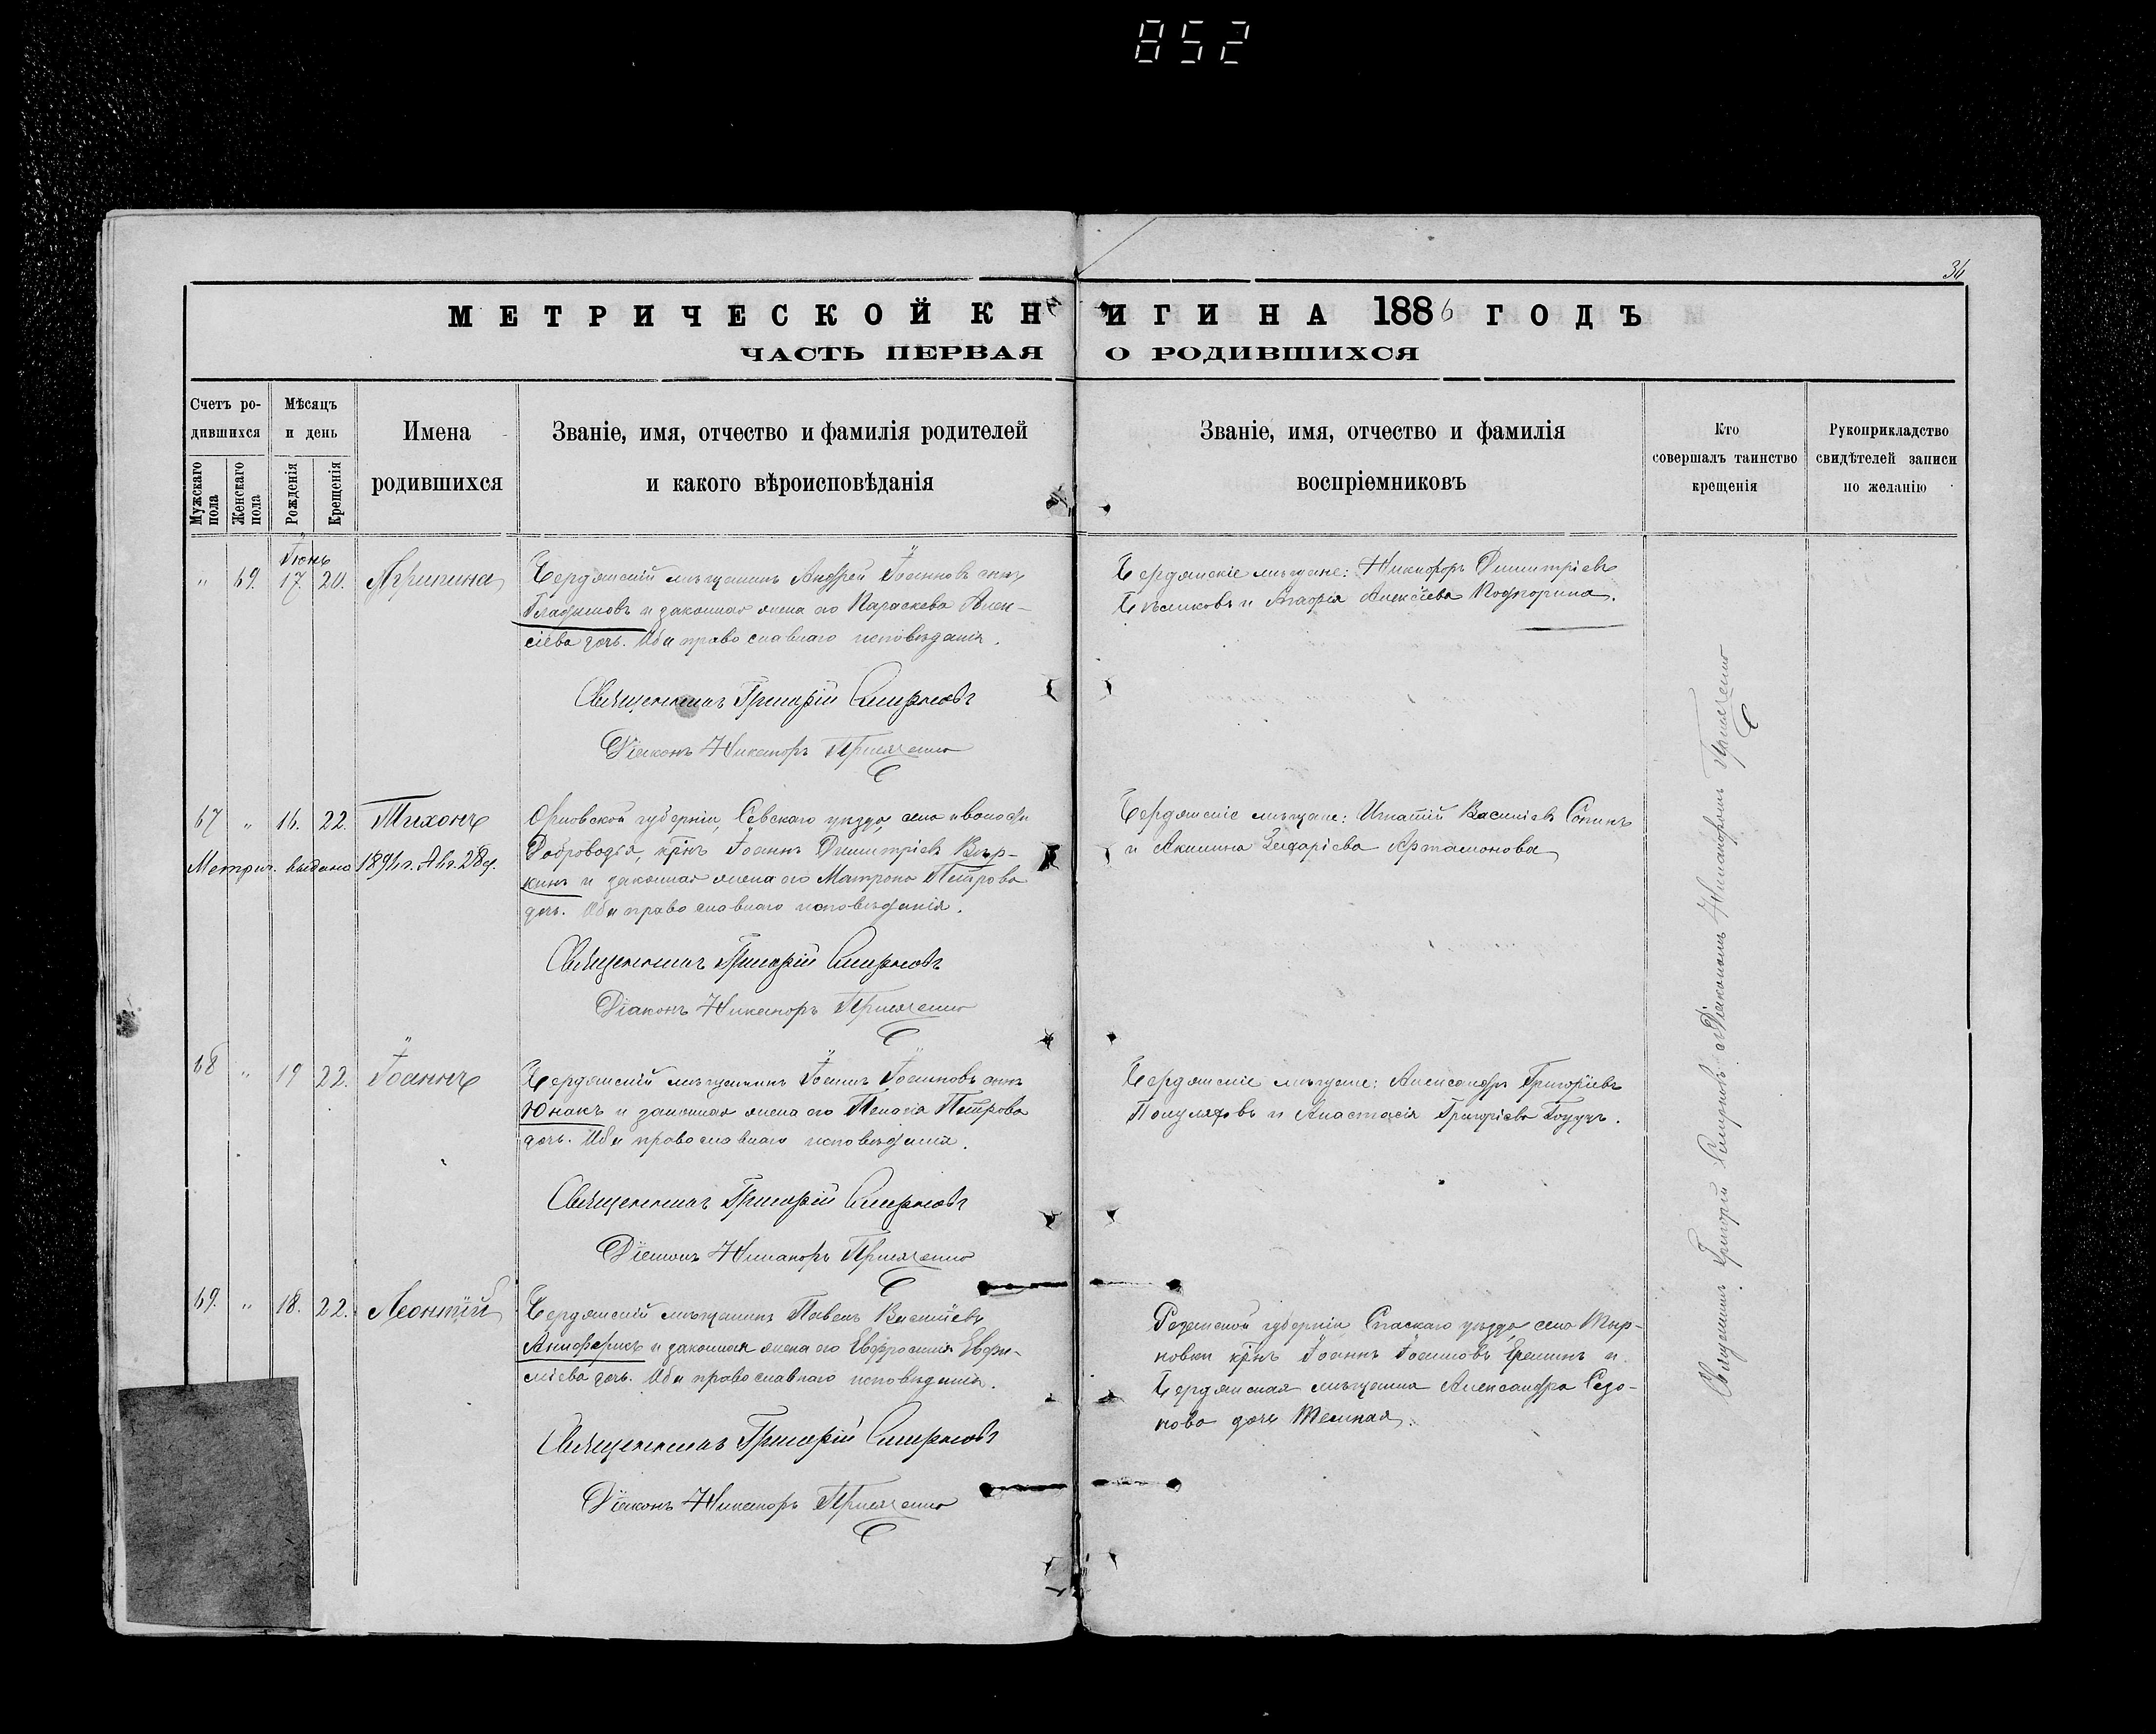 852
34
МЕТРИЧЕСКОЙ КНИГИ НА 1886 ГОДЪ
ЧАСТЬ ПЕРВАЯ О РОДИВШИХСЯ
Счетъ родившихся
Мужскаго пола
Женскаго пола
Мѣсяцъ и день
Рожденія
Крещенія
Имена родившихся
Званіе, имя, отчество и фамилія родителей
и какого вѣроисповѣданія
Званіе, имя, отчество и фамилія
воспріемниковъ
Кто
совершалъ таинство
крещенія
Рукоприкладство
свидѣтелей записи
по желанію
Іюнь
" 69. 17. 20. Агрипина
Бердянскій мѣщанинъ Андрей Іоанновъ сынъ
и законная жена его Параскева Алек-
сіева дочь. Оба православнаго исповѣданія.
Священникъ Григорій Смирновъ
Діаконъ Никаноръ
Бердянскіе мѣщане: Никифоръ Димитріевъ
и Агафія Алексіева Подгорина.
67 " 16. 22. Тихонъ
Метрич. выдана 1891 г. Авг. 28 д.
Орловской губерніи, Севскаго уѣзда, села и волости
Доброводья, крнъ Іоаннъ Димитріевъ Вѣр-
кинъ и законная жена его Матрона Петрова
дочь. Оба православнаго исповѣданія.
Священникъ Григорій Смирновъ
Діаконъ Никаноръ
Бердянскіе мѣщане: Игнатій Василіевъ
и Акилина Захаріева Артамонова
68 " 19 22. Іоаннъ
Бердянскій мѣщанинъ Іоаннъ Іоанновъ сынъ
Юнакъ и законная жена его Пелагія Петрова
дочь. Оба православнаго исповѣданія.
Священникъ Григорій Смирновъ
Діаконъ Никаноръ
Бердянскіе мѣщане: Александръ Григоріевъ
и Анастасія Григоріева
69. " 18. 22. Леонтій
Бердянскій мѣщанинъ Павелъ Василіевъ
и законная жена его Евфросинія Евфи-
міева дочь. Оба православнаго исповѣданія.
Священникъ Григорій Смирновъ
Діаконъ Никаноръ
губерніи Спаскаго уѣзда села
новки крнъ Іоаннъ Іоанновъ Еремин и
Бердянская мѣщанка Александра
нова дочь Темная.
Священникъ Григорій Смирновъ съ Діакономъ Никаноромъ